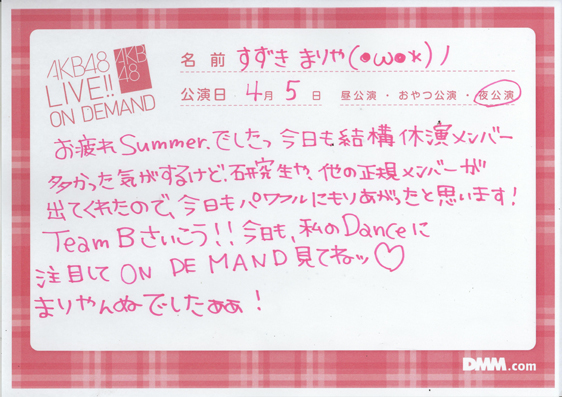 AKB48
LIVE!!
ON DEMAND
AKB
48
名前 すずき まりや(●ω●*)ノ
公演日 4月 5日 昼公演・おやつ公演・夜公演
お疲れSummer.でしたっ 今日も結構休演メンバー
多かった気がするけど、研究生や、他の正規メンバーが
出てくれたので、今日もパワフルにもりあがったと思います!
Team Bさいこう!!今日も、私のDanceに
注目して ON DE MAND見てねッ♡
まりやんぬでしたぁぁ!
DMM.com